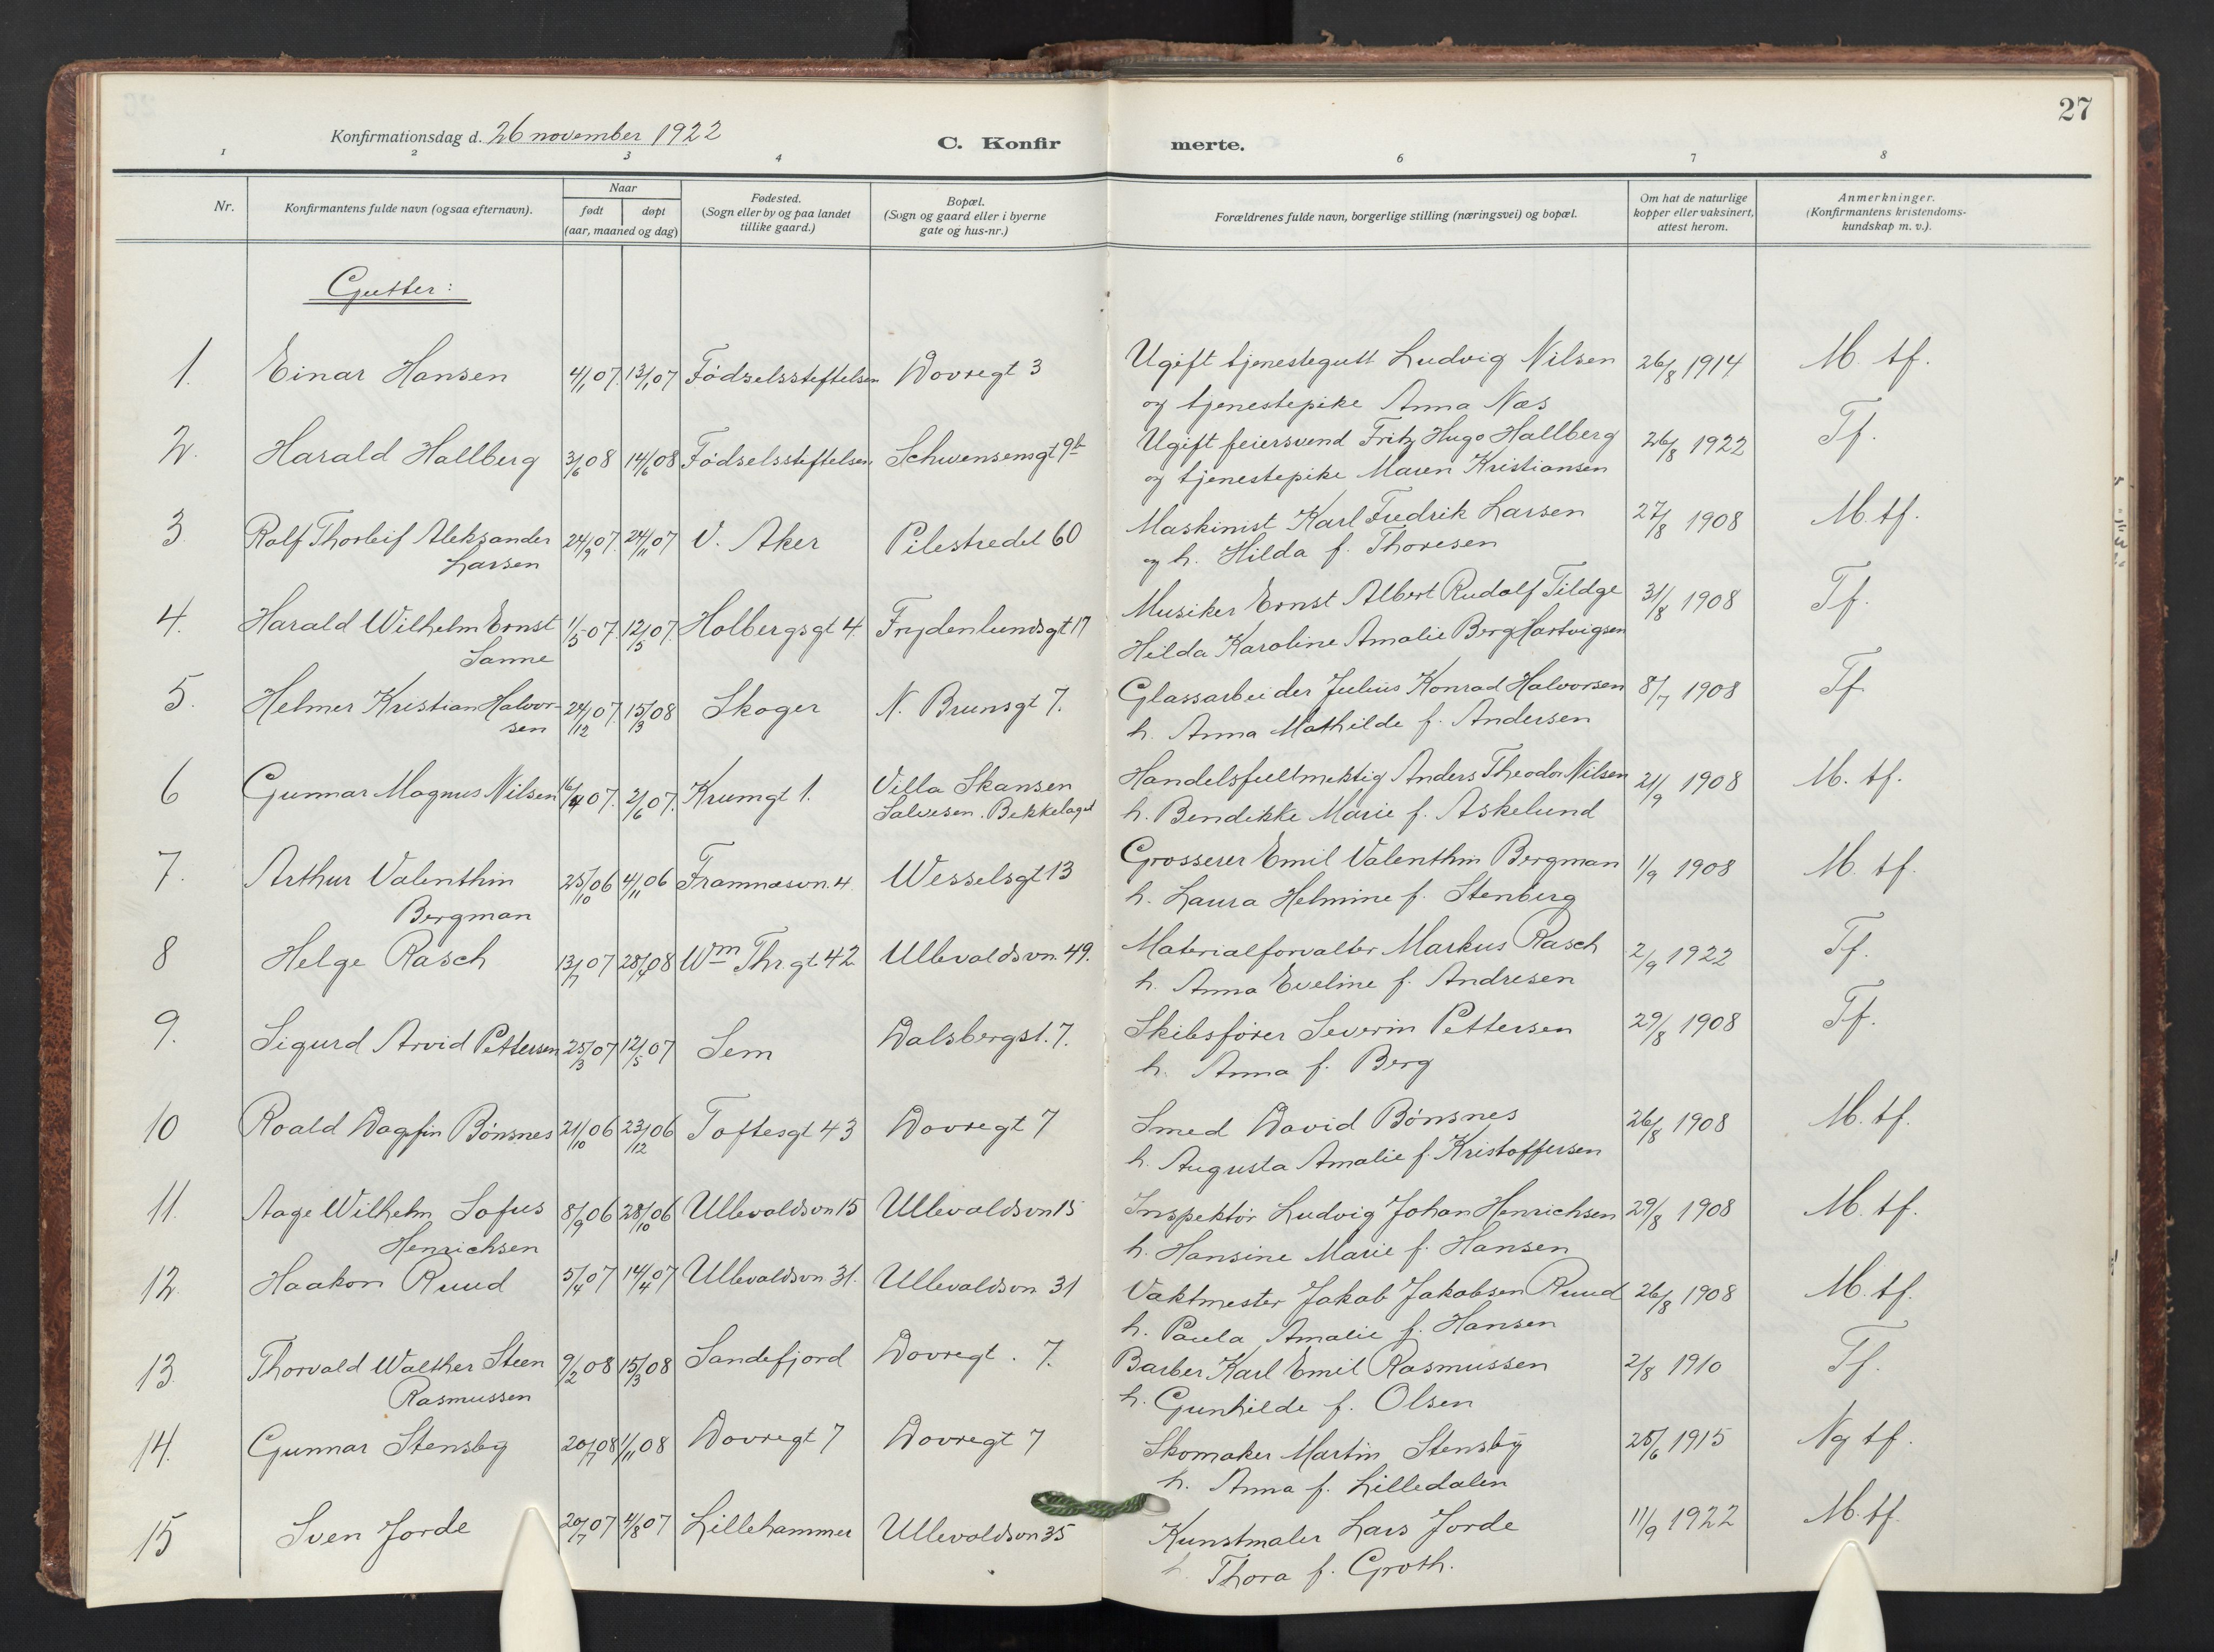 27
Konfirmationsdag d. 26 november 1922
C. Konfir merte.
1 2 3 4 6 7 8
Nr.
Konfirmantens fulde navn (ogsaa efternavn).
Naar
født døpt
(aar, maaned og dag)
Fødested.
(Sogn eller by og paa landet
tillike gaard.)
Bopæl.
(Sogn og gaard eller i byerne
gate og hus-nr.)
Forældrenes fulde navn, borgerlige stilling (næringsvei) og bopæl.
Om hat de naturlige
kopper eller vaksinert,
attest herom.
Anmerkninger.
(Konfirmantens kristendoms-
kundskap m. v.).
Gutter:
1. Einar Hansen 4/1 07. 13/1 07 Fødselsstiftelsen Dovregt 3 Ugift tjenestegutt Ludvig Nilsen 26/8 1914 M. tf.
og tjenestepike Anna Næs
2. Harald Hallberg 3/6 08 14/6 08 Fødselsstiftelsen Schwensensgt 9b Ugift feiersvend Fritz Hugo Hallberg 26/8 1922 Tf.
og tjenestepike Maren Kristiansen
3. Rolf Thorleif Aleksander 24/9 07. 24/11 07 V. Aker Pilestredet 60 Maskinist Karl Fredrik Larsen 27/8 1908 M. tf.
Larsen og h. Hilda f. Thoresen
4. Harald Wilhelm Ernst 1/5 07. 12/5 07. Holbergsgt 4. Frydenlundsgt 17 Musiker Ernst Albert Rudolf Tildge 31/8 1908 Tf.
Sanne Hilda Karoline Amalie Berg Hartvigsen
5. Helmer Kristian Halvor- 24/12 07. 15/3 08 Skoger N. Brunsgt 7. Glassarbeider Julius Konrad Halvorsen 8/7 1908 Tf
sen h. Anna Mathilde f. Andersen
6 Gunnar Magnus Nilsen 16/4 07. 2/6 07. Krumgt 1. Villa Skansen Handelsfullmektig Anders Theodor Nilsen 21/9 1908 M. tf.
Salvesen. Bekkelaget h. Bendikke Marie f. Askelund
7. Arthur Valenthin 25/10 06 4/11 06 Framnæsvn. 4. Wesselsgt 13 Grosserer Emil Valenthin Bergman 1/9 1908 M. tf.
Bergman h. Laura Helmine f. Stenberg
8 Helge Rasch 13/7 07 Wm Thr.gt. 42 Ullevoldsvn. 49. Materialforvalter Markus Rasch 2/9 1922 Tf.
h. Anna Eveline f. Andresen
9. Sigurd Arvid Pettersen 25/3 07 12/5 07 Sem Dalsbergst. 7. Skibsfører Severin Pettersen 29/8 1908 Tf.
h. Anna f. Berg
10 Roald Dagfin Bønsnes 21/10 06 23/12 06 Toftesgt 43 Dovregt 7 Smed David Bønsnes 26/8 1908 M. tf.
h. Augusta Amalie f. Kristoffersen
11. Aage Wilhelm Sofus 8/9 06 28/10 06 Ullevoldsvn 15 Ullevoldsvn 15 Inspektør Ludvig Johan Henrichsen 29/8 1908 M. tf.
Henrichsen h. Hansine Marie f. Hansen
12. Haakon Ruud 5/4 07 14/4 07 Ullevoldsvn 31. Ullevoldsvn 31 Vaktmester Jakob Jakobsen Ruud 26/8 1908 M. tf.
h. Paula Amalie f. Hansen
13. Thorvald Walther Steen 9/2 08 15/3 08 Sandefjord Dovregt. 7. Barber Karl Emil Rasmussen 2/8 1910 Tf.
Rasmussen h. Gunhilde f. Olsen
14. Gunnar Stensby 20/7 08 1/11 08 Dovregt 7 Dovregt 7 Skomaker Martin Stensby 1915 Ng tf.
h. Anna f. Lilledalen
15 Sven Jorde 20/7 07 4/8 07 Lillehammer Ullevoldsvn 35 Kunstmaler Lars Jorde 11/9 1922 M. tf.
h. Thora f. Groth.